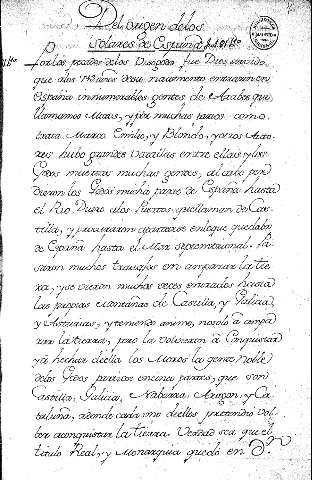 Del origen de los
solares de España
Por los pecados de los Visogodos fue Dios servido
que alos 714 años de su nacimiento entraron en
España innumerables gentes de Arabes que
llamamos Moros, y por muchas partes como
trata Marco Emilio, y Blondo, y otros Auto-
res hubo grandes batallas entre ellos y los
Godos muertas muchas gentes, al cabo per-
dieron los Godos mucha parte de España hasta
el Rio Duero alos Puertos que llaman de Cas-
tilla, y procuraron apartarse en lo que quedaba
de España hasta el Mar septentrional. Pa
saron muchos trabajos en amparar la tie-
rra, y se vieron muchas veces entrados hasta
las propias Montañas de Castilla, y Galicia
y Asturias, y teniendo animo, no solo à ampa
rar la tierra, pero la volvieron à Conquistar
y à hechar de ella los Moros la gente noble
de los Godos
Castilla, Galicia, Nabarra Aragon, y Ca-
taluña, adonde cada uno de ellos pretendio vol-
ber a conquistar la tierra. Verdad sea que el
titulo Real, y Monarquia quedò en D.n